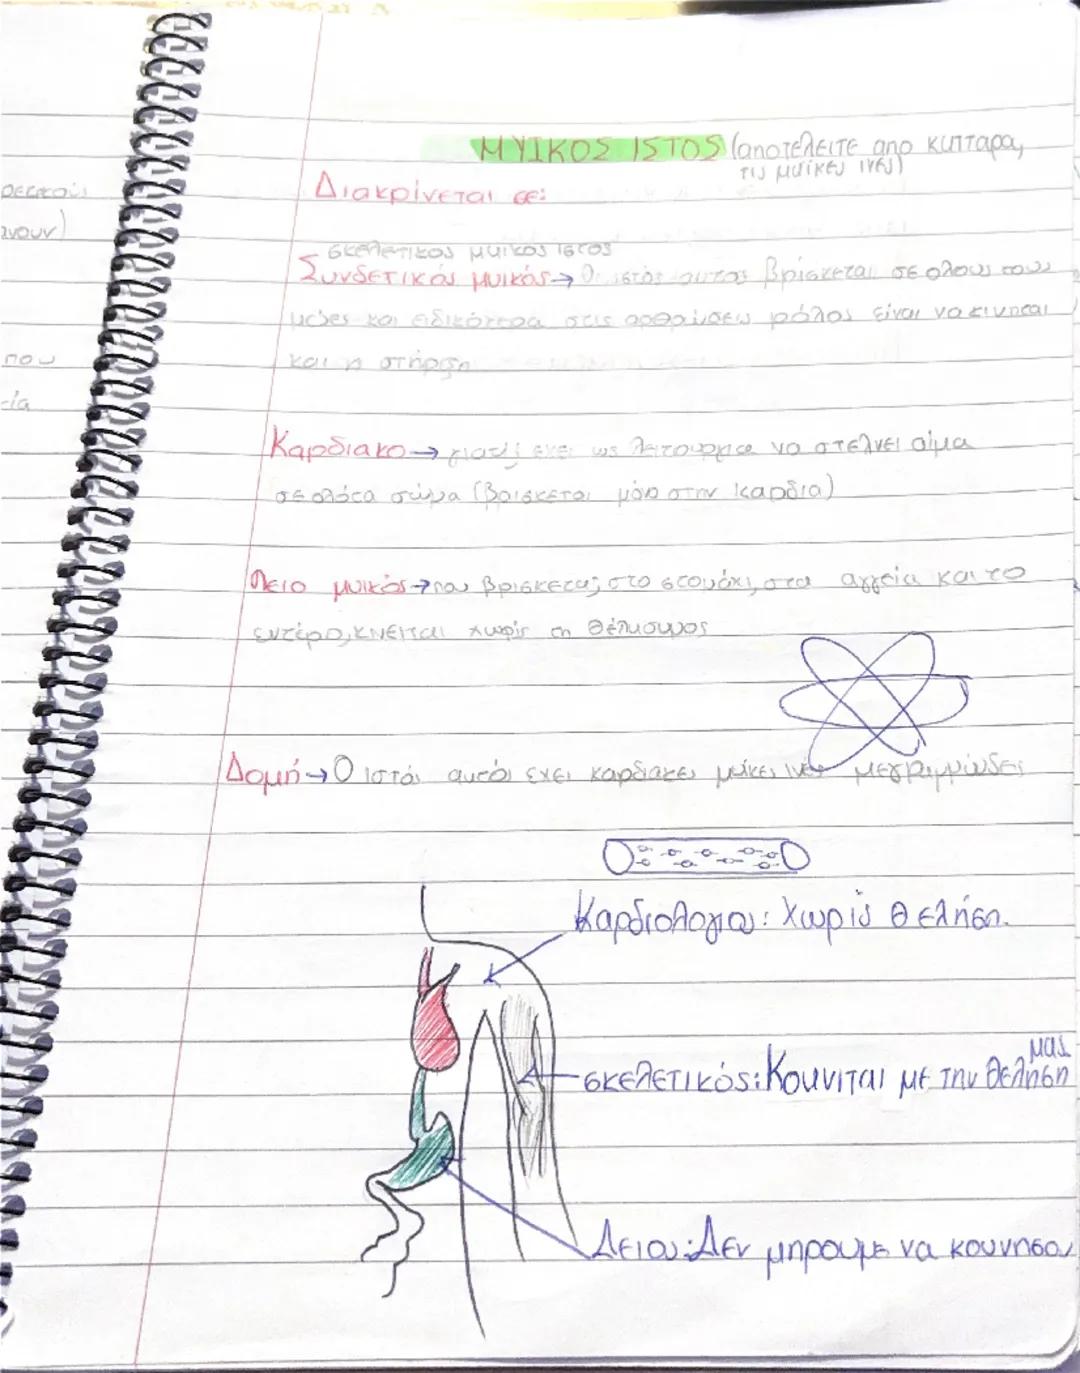 ΜΥΙΚΟΣ ΙΣΤΟΣ (αποτελειτε απο κυτταρα,
τις μυϊκες ινες)
Διακρίνεται σε:
σκελετικος μυικος ιστος
Συνδετικός μυικός → Ο ιστός αυτος βρίσκεται σε ολους τους
και ειδικότερα στις αρθρώσεις ρόλος είναι να κινηται
και η στήριξη
Καρδιακο → γιατί έχει ως λειτουργια να στέλνει αίμα
σε ολο το σώμα (βρισκεται μόνο στην καρδια)
Λειο μυικός → που βρισκεται στο στομάχι, στα αγγεία και το
εντέρο, κινειται χωρίς τη θέληση μας
Δομή → Ο ιστός αυτός έχει καρδιακες μυϊκες ίνες
Καρδιολογια: Χωρίς θέληση.
μας
σκελετικός: Κουνιται με την θέληση
Λειου: Δεν μπορουμε να κουνησου
που